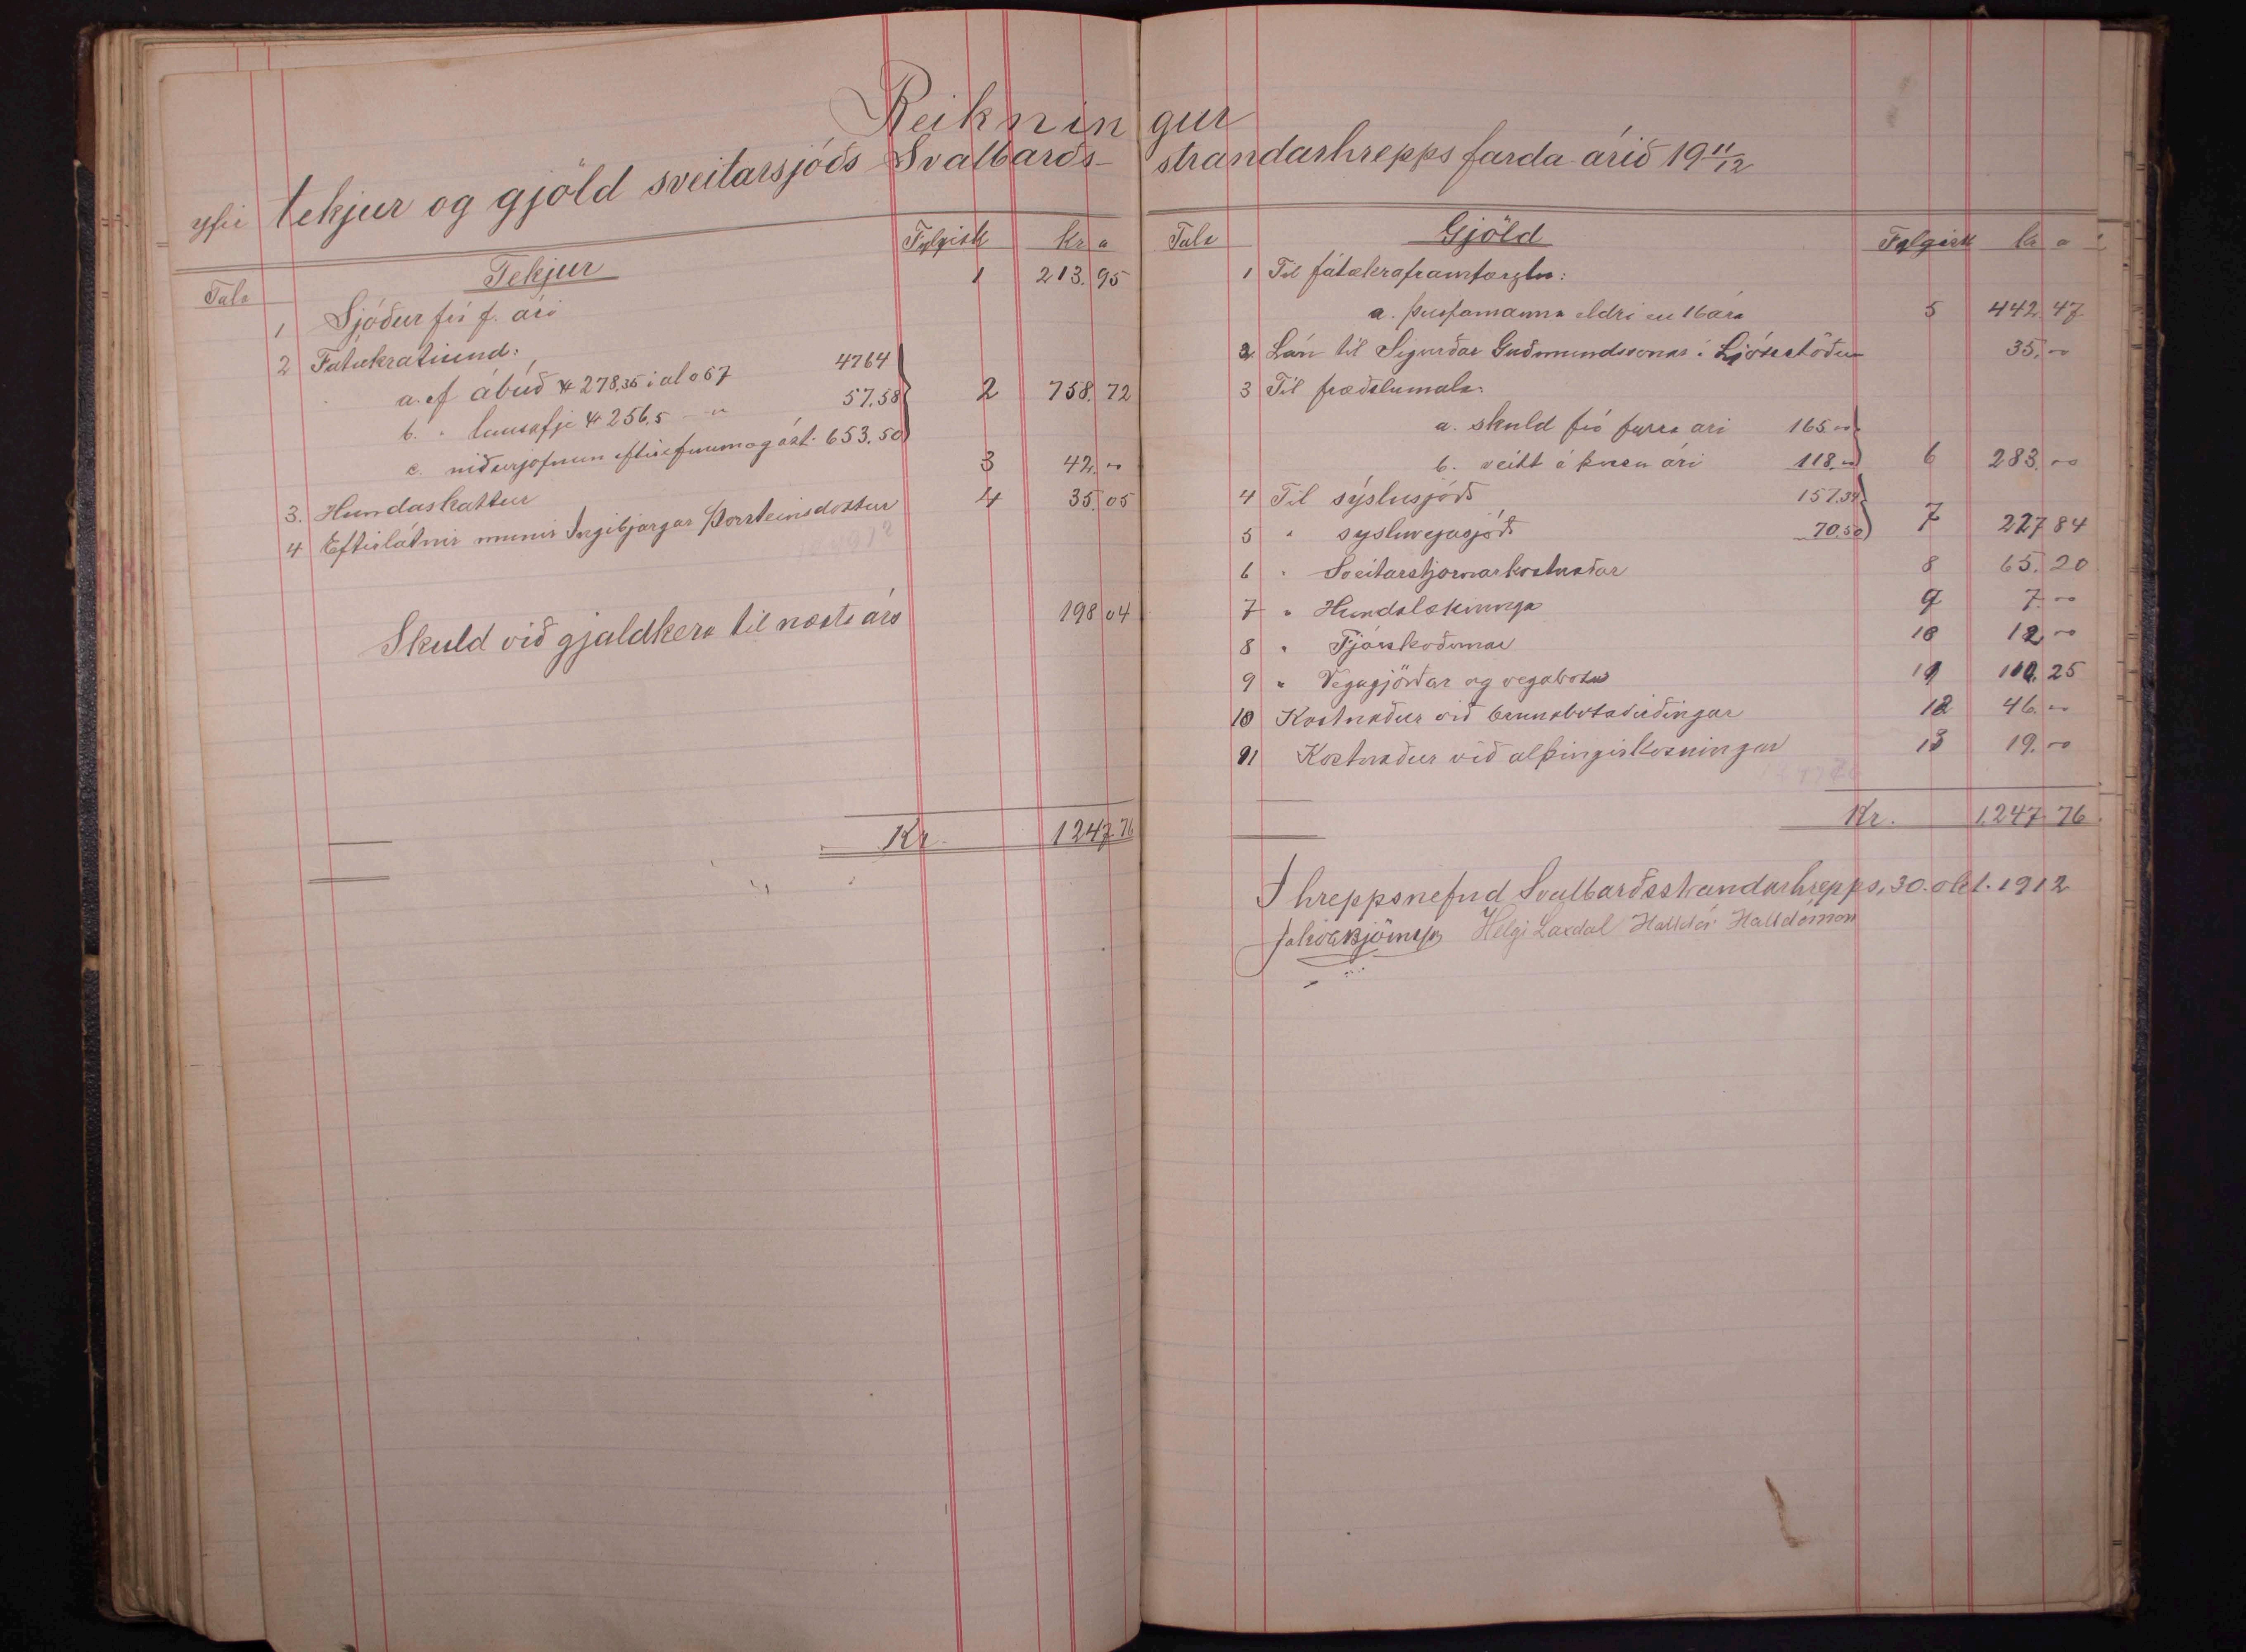 Reikningur
yfir tekjur og gjöld sveitarsjóðs Svalbarðs-strandarhrepps fardaárið 19 11/12
Tala Tekjur Fylgisk kr a
1 Sjóður frá f. ári 1 213.95
2 Fátækratíund:
a. af ábúð 278,35 í al o 57 4764
b. " lausafje 256,5 - " 57.58 2 758.72
c. niðurjöfnun eftir efnum og ást. 653.50
3. Hundaskattur 3 42.00
4 Eftirlátnir munir Ingibjargar Þorsteinsdottur 4 35.05
Skuld við gjaldkera til næsta árs 198 04
Kr. 1247.76
Tala Gjöld Fylgisk kr a
1 Til fátækraframfærslu:
a. þurfamanna eldri en 16 ára 5 442.47
2 Lán til Sigurðar Guðmundssonar í 35.00
3 Til fræðslumala:
a. skuld frá fyrra ari 165.00
b. veitt á þessu ári 118.00 6 283.00
4 Til sýslusjóðs 157.34
5 " sysluvegasjóðs 70.50 7 227 84
6 " Sveitarstjornarkostnaðar 8 65.20
7 " Hundalækninga 9 7.00
8 " Fjárskoðunar 10 12.00
9 " Vegagjörðar og vegabota 11 110.25
10 Kostnaður við brunabotavirðingar 12 46.00
11 Kostnaður við alþingiskosningar 13 19.00
Kr. 1.247.76
Í hreppsnefnd Svalbarðsstrandarhrepps, 30. okt. 1912
Helgi Laxdal Halldór Halldórsson